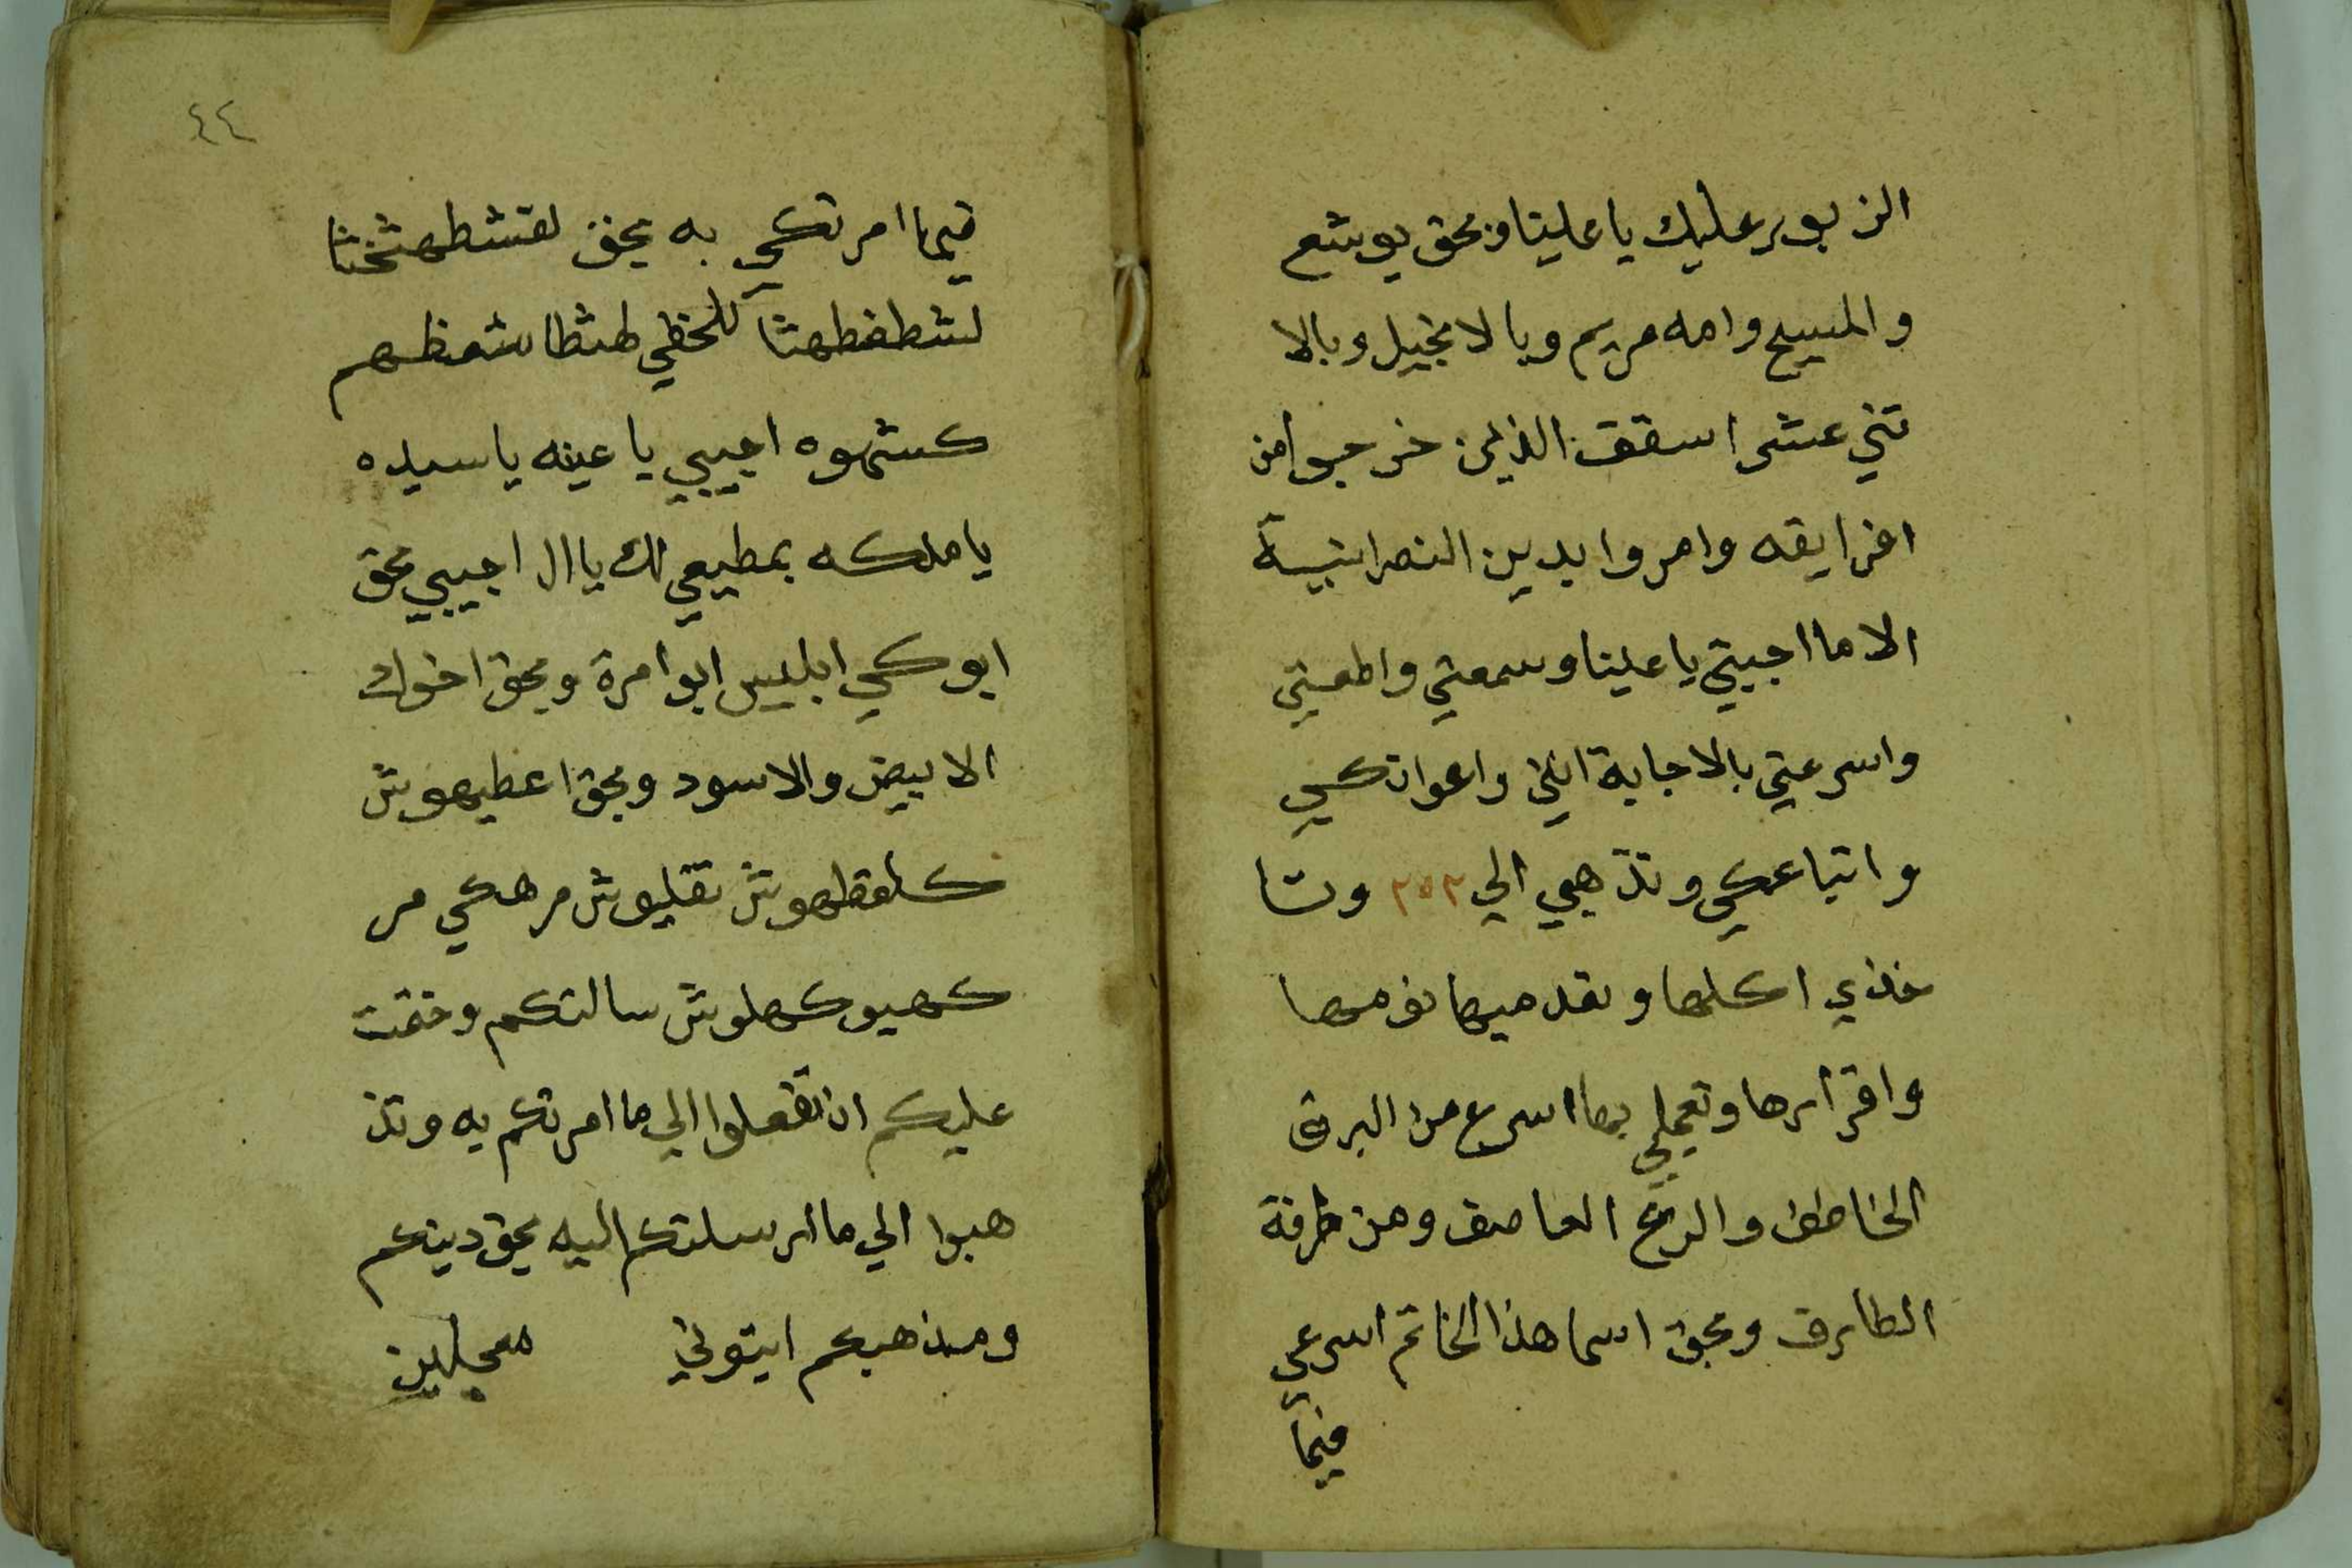 الزبور عليك يا علينا وبحق يوشع
والمسيح وامه مريم وبالانجيل وبالا
تني عشر اسقف الذين خرجوا من
افرايقه وامروا بدين النصرانية
الا ما اجبتي يا علينا وسمعتي واطعتي
واسرعتي بالاجابة انتي واعوانكي
واتباعكي وتذهبي الي ٢٥٢ وتا
خذي اكلها و نومها
واقرارها وتعملي بها اسرع من البرق
الخاطف والريح العاصف ومن طرفة
الطارف وبحق اسما هذا الخاتم اسرعي
فيما
٤٤
فيما امرتكي به بحق لقشطهشخثا
كشهوه اجيبي يا عينه يا سيده
يا ملكه بمطيعي لك يا ال اجيبي بحق
ابوكي ابليس ابوا مرة وبحق اخوك
الابيض والاسود وبحق اعطيهوش
كلمقطهوش تقليوش مرهكي مر
كهيوكهلوش سالتكم وختمت
عليكم ان تفعلوا الي ما امرتكم به وتذ
هبوا الي ما ارسلتكم اليه بحق دينكم
ومذهبكم ايتوني معجلين